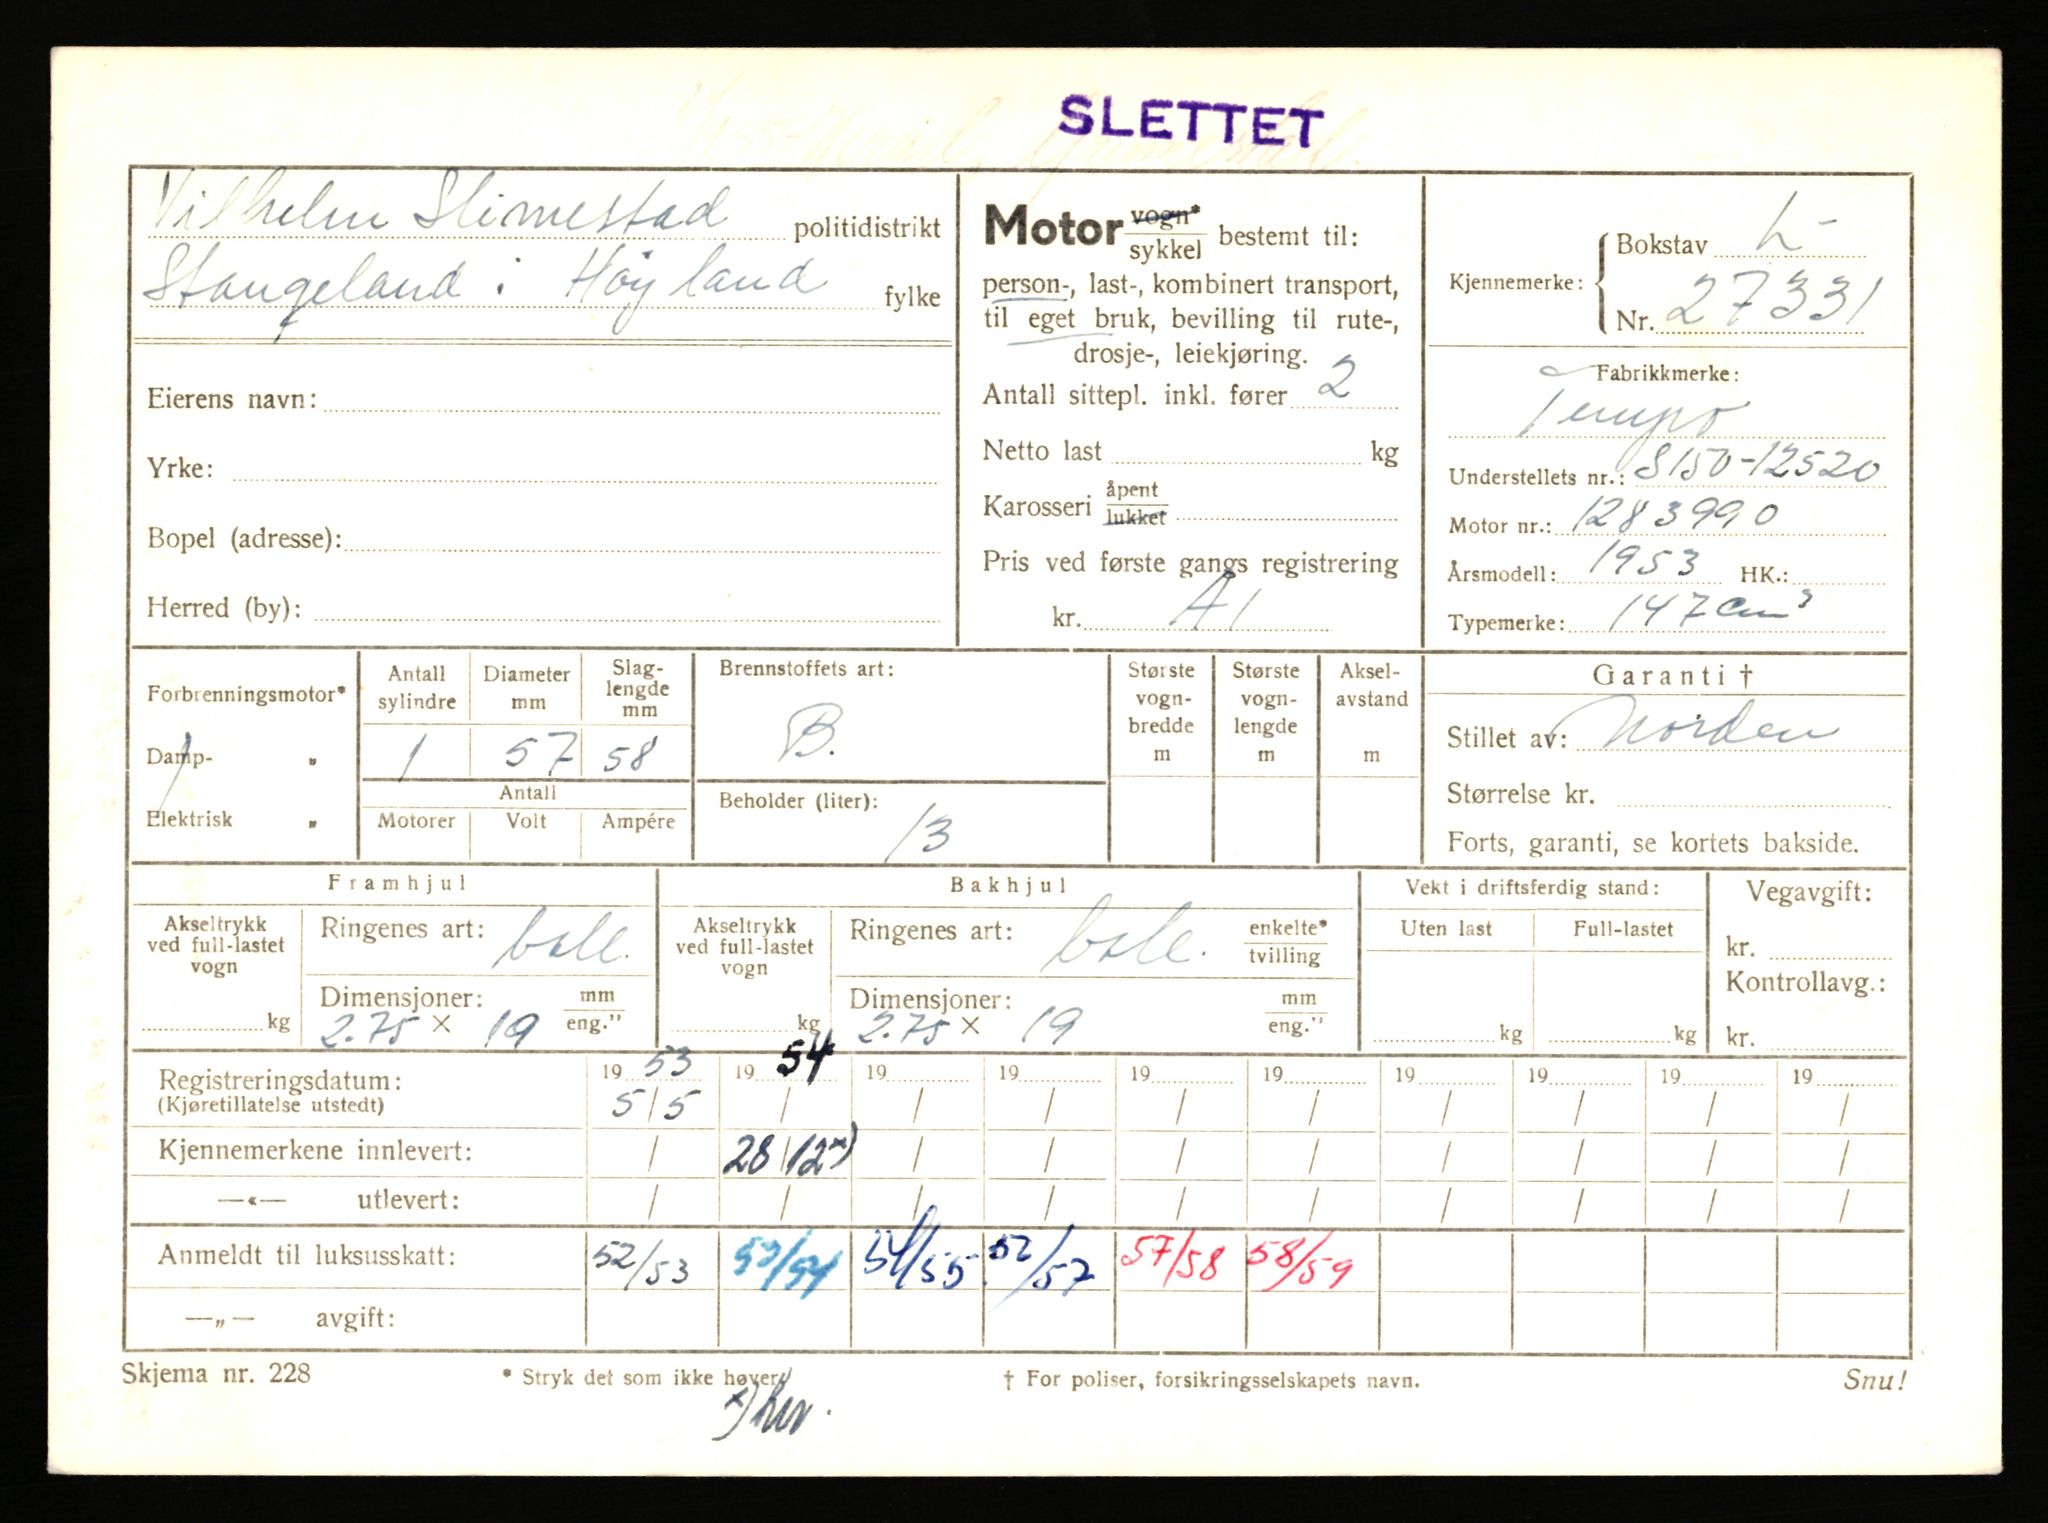 SLETTET
Vilhelm Slimestad politidistrikt
Stangeland i Høyland fylke
Eierens navn:
Yrke:
Bopel (adresse):
Herred (by):
Motor vogn* sykkel bestemt til:
person-, last-, kombinert transport,
til eget bruk, bevilling til rute-,
drosje-, leiekjøring.
Antall sittepl. inkl. fører 2
Netto last kg
Karosseri åpent lukket
Pris ved første gangs registrering
kr. A1
Kjennemerke: Bokstav L-
Nr. 27331
Fabrikkmerke:
Tempo
Understellets nr.: S150-12520
Motor nr.: 1283990
Årsmodell: 1953 HK.:
Typemerke: 147 cm³
Forbrenningsmotor*
Damp- „
Elektrisk „
Antall sylindre 1
Diameter mm 57
Slaglengde mm 58
Antall
Motorer Volt Ampére
Brennstoffets art:
B.
Beholder (liter):
13
Største vognbredde m
Største vognlengde m
Akselavstand m
Garanti †
Stillet av: Norden
Størrelse kr.
Forts, garanti, se kortets bakside.
Framhjul
Akseltrykk ved full-lastet vogn
kg
Ringenes art: ball.
Dimensjoner: mm
2.75 × 19 eng."
Bakhjul
Akseltrykk ved full-lastet vogn
kg
Ringenes art: ball. enkelte* tvilling
Dimensjoner: mm
2.75 × 19 eng."
Vekt i driftsferdig stand:
Uten last Full-lastet
kg kg
Vegavgift:
kr.
Kontrollavg.:
kr.
Registreringsdatum: 19 53 19 54 19 19 19 19 19 19 19 19
(Kjøretillatelse utstedt) 5/5 / / / / / / / / /
Kjennemerkene innlevert: / 28/12 x) / / / / / / / /
—«— utlevert: / / / / / / / / / /
Anmeldt til luksusskatt: 52/53 53/54 54/55 52/57 57/58 58/59
—„— avgift:
Skjema nr. 228 * Stryk det som ikke høver. † For poliser, forsikringsselskapets navn. Snu!